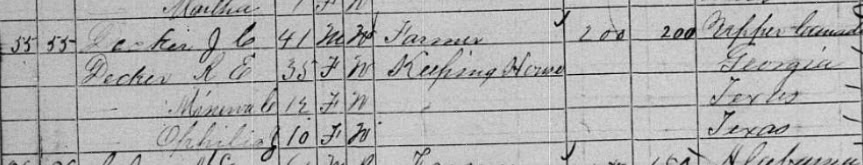 Martha 1 F W
55 55 Decker J C 41 M W Farmer 200 200 Upper Canada
Decker R E 35 F W Keeping House Georgia
— Minerva C 12 F W Texas
— Ophilia J 10 F W Texas
Alabama